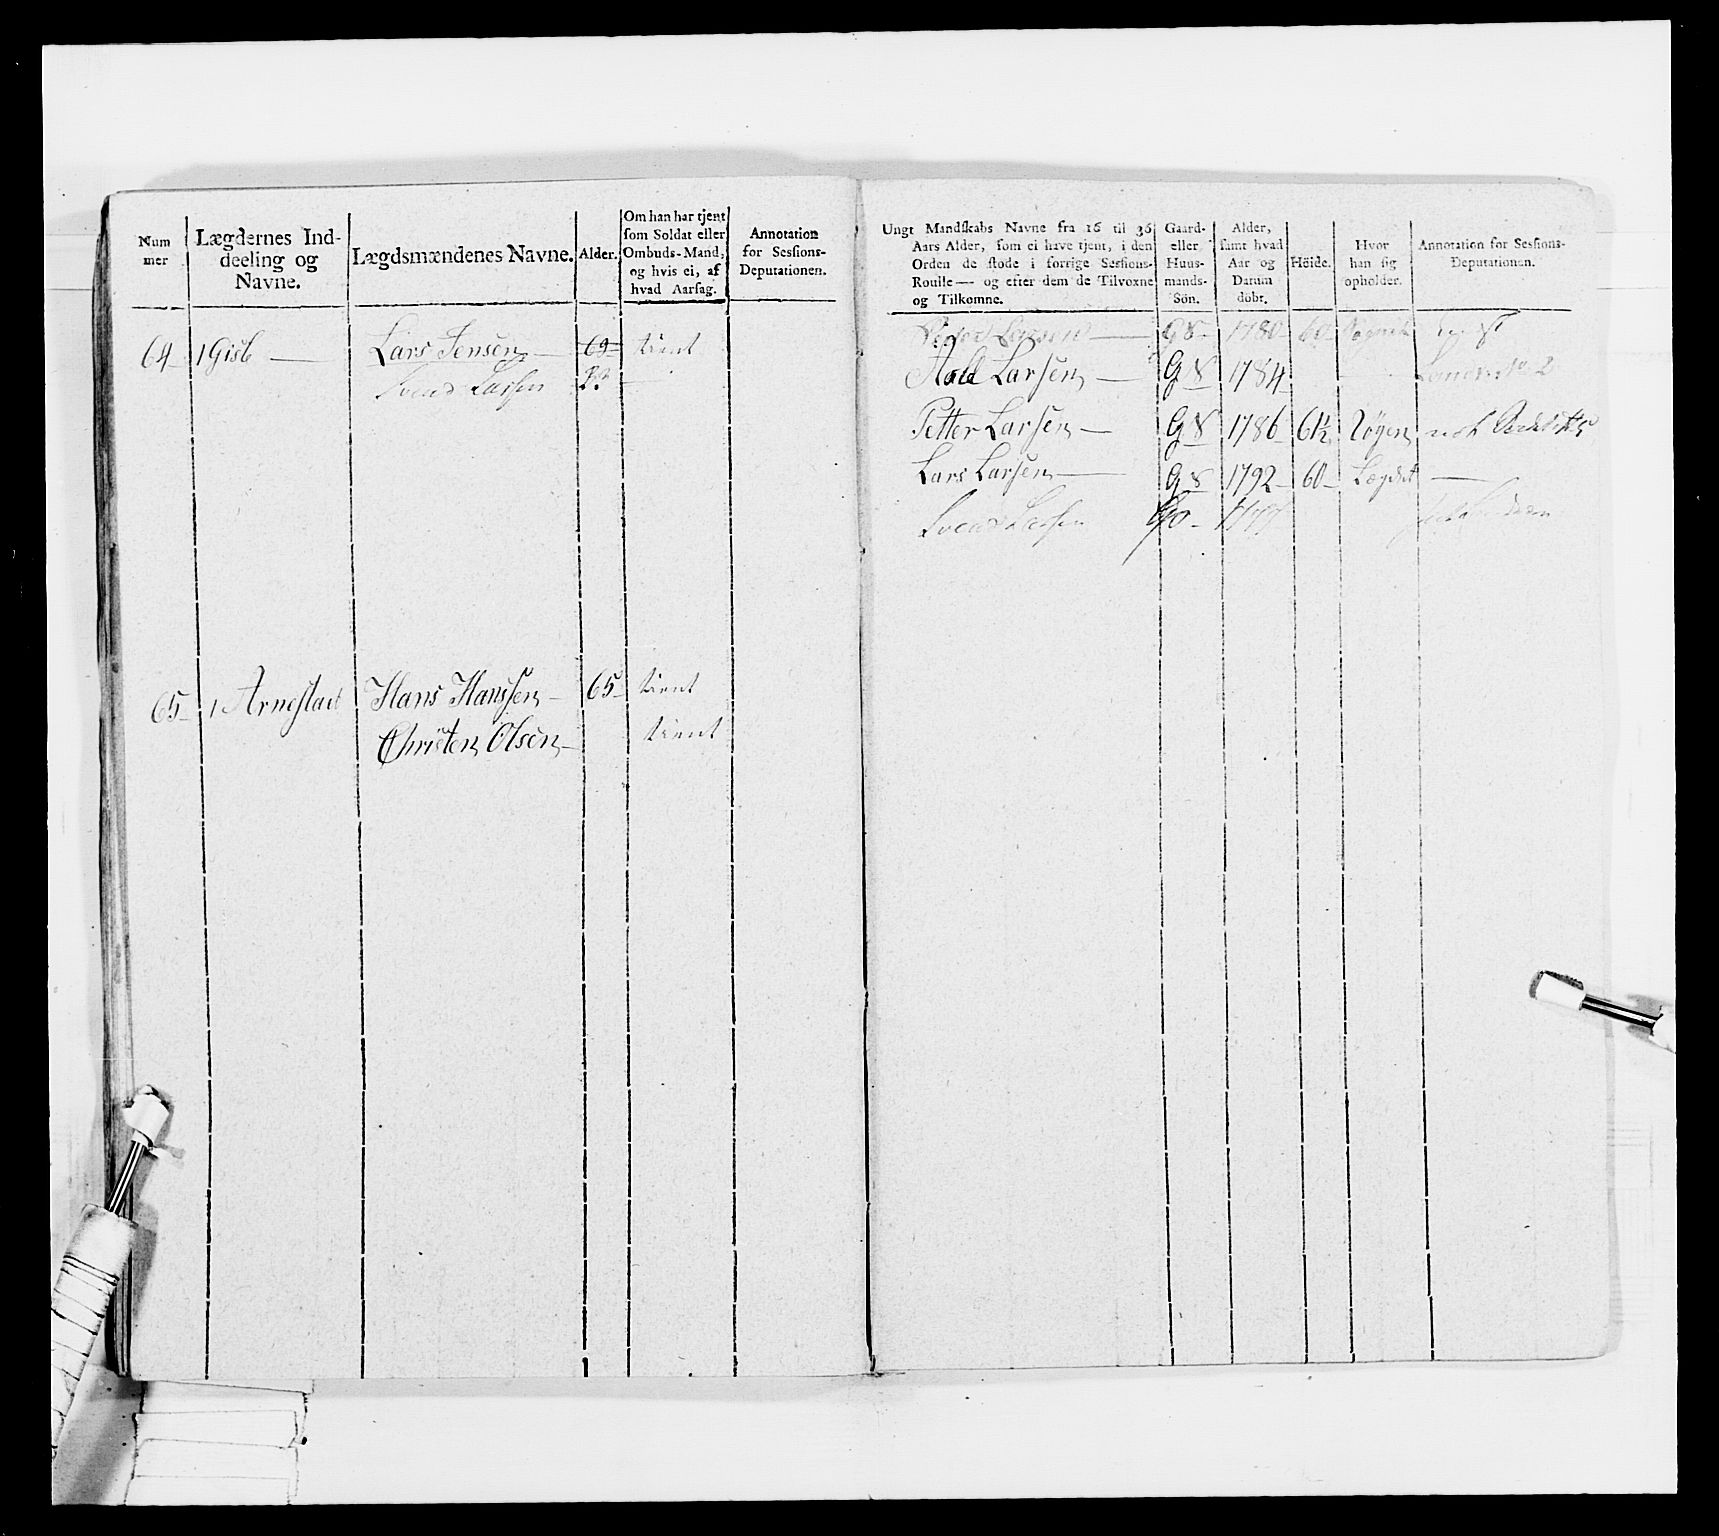 Num
mer
Lægdernes Ind-
deeling og
Navne.
Lægdsmændenes Navne.
Alder.
Om han har tjent
som Soldat eller
Ombuds-Mand,
og hvis ei, af
hvad Aarsag.
Annotation
for Sessions-
Deputationen.
64 1 Gisb — Lars Jensen — 69 tient
Svend Larsen 33 —
65 1 Arnestad Hans Hanssen — 65 tient
Christen Olsen — tient
Ungt Mandskabs Navne fra 16 til 36
Aars Alder, som ei have tjent, i den
Orden de stode i forrige Sessions-
Roulle — og efter dem de Tilvoxne
og Tilkomne.
Gaard-
eller
Huus-
mands-
Sön.
Alder,
samt hvad
Aar og
Datum
döbt.
Höide.
Hvor
han sig
opholder.
Annotation for Sessions-
Deputationen.
Larsen — G S 1780 60
Larsen — G S 1784
Petter Larsen — G S 1786 61½ Røgen
Lars Larsen — G S 1792 60 Lægdet —
Svend Larsen